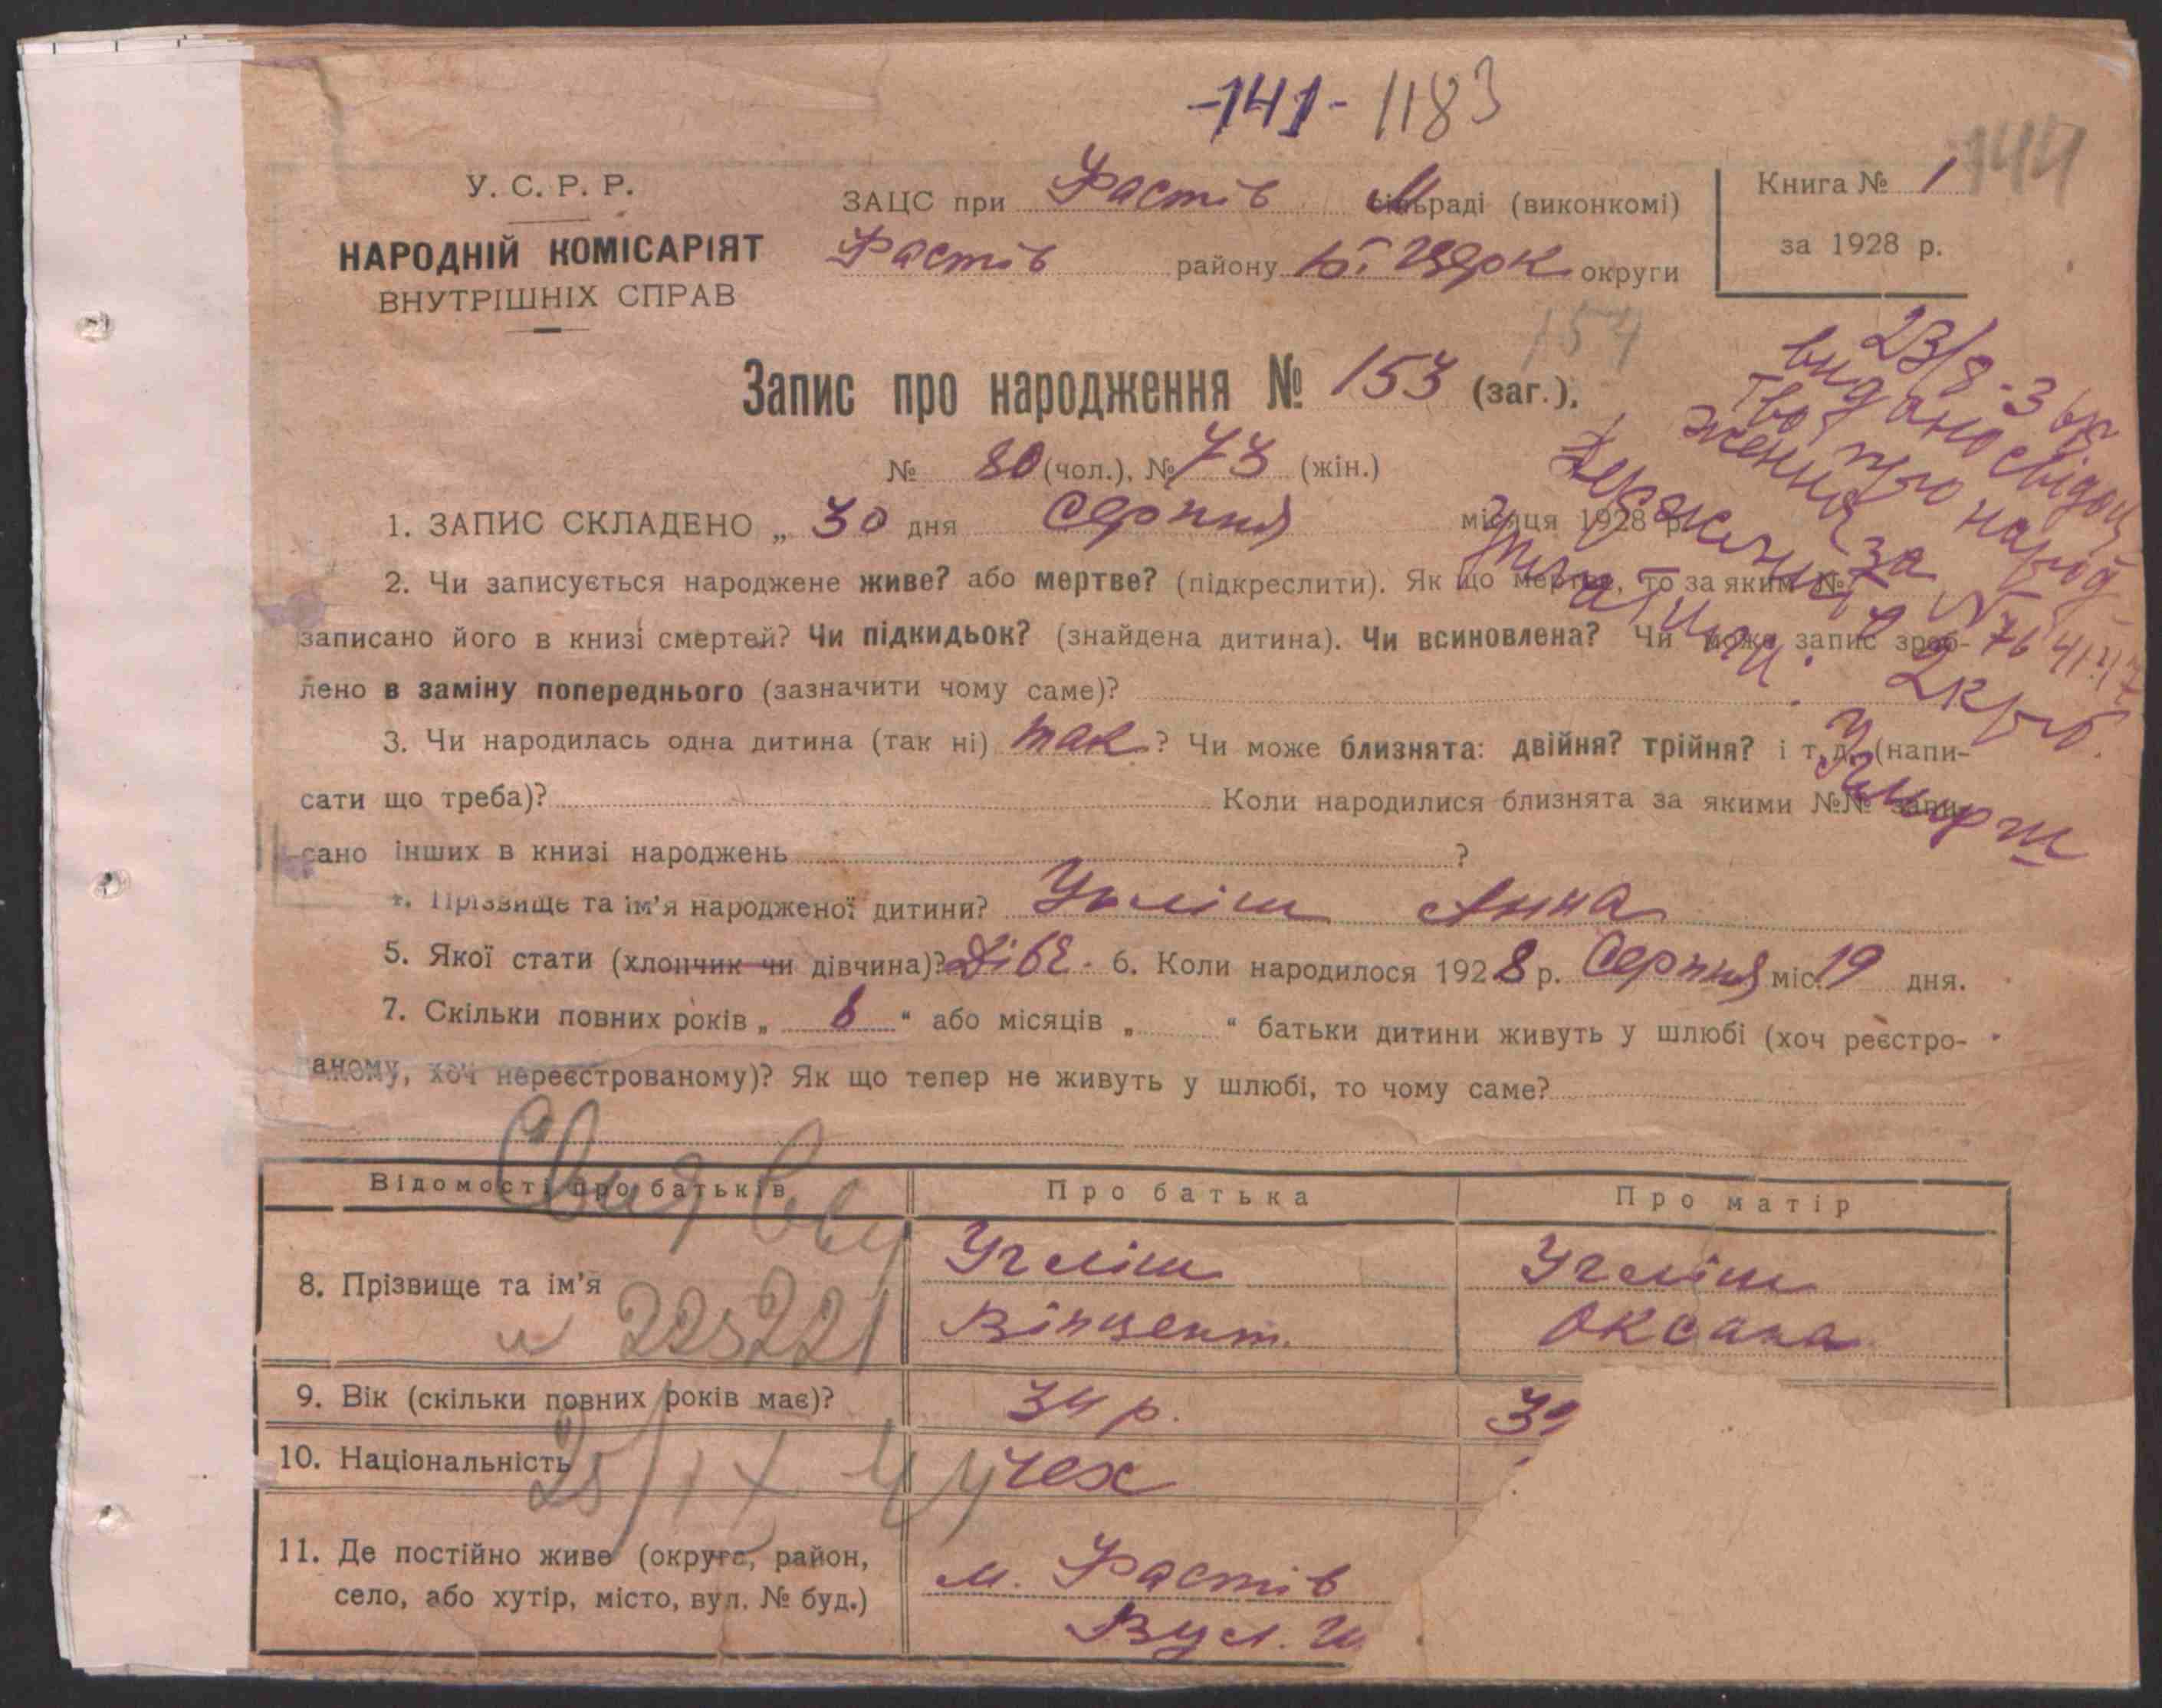 -141- 1183
144
У. С. Р. Р.
НАРОДНІЙ КОМІСАРІЯТ
ВНУТРІШНІХ СПРАВ
ЗАЦС при Фастів М сільраді (виконкомі)
Фастів району Б. Церк округи
Книга № 1
за 1928 р.
154
Запис про народження № 153 (заг.),
№ 80 (чол.), № 73 (жін.)
23/8 - 3
видано свідоц
тво про народ
ження за №
2 крб.
1. ЗАПИС СКЛАДЕНО „ 30 дня серпня місяця 1928 р.
2. Чи записується народжене живе? або мертве? (підкреслити). Як що мертве, то за яким №
записано його в книзі смертей? Чи підкидьок? (знайдена дитина). Чи всиновлена? Чи може запис зроб-
лено в заміну попереднього (зазначити чому саме)?
3. Чи народилась одна дитина (так ні) так ? Чи може близнята: двійня? трійня? і т. д. (напи-
сати що треба)? Коли народилися близнята за якими №№ запи-
сано інших в книзі народжень ?
4. Прізвище та ім'я народженої дитини? Анна
5. Якої стати (хлопчик чи дівчина)? Дівч. 6. Коли народилося 1928 р. Серпня міс. 19 дня.
7. Скільки повних років „ 6 “ або місяців „ “ батьки дитини живуть у шлюбі (хоч реєстро-
аному, хоч нереєстрованому)? Як що тепер не живуть у шлюбі, то чому саме?
Відомості про батьків
Про батька
Про матір
8. Прізвище та ім'я
Угліш
Вінцент.
Угліш
Оксана
225221
9. Вік (скільки повних років має)?
34 р.
10. Національність
чех
25/IX 44
11. Де постійно живе (округа, район,
село, або хутір, місто, вул. № буд.)
м. Фастів
Вул.